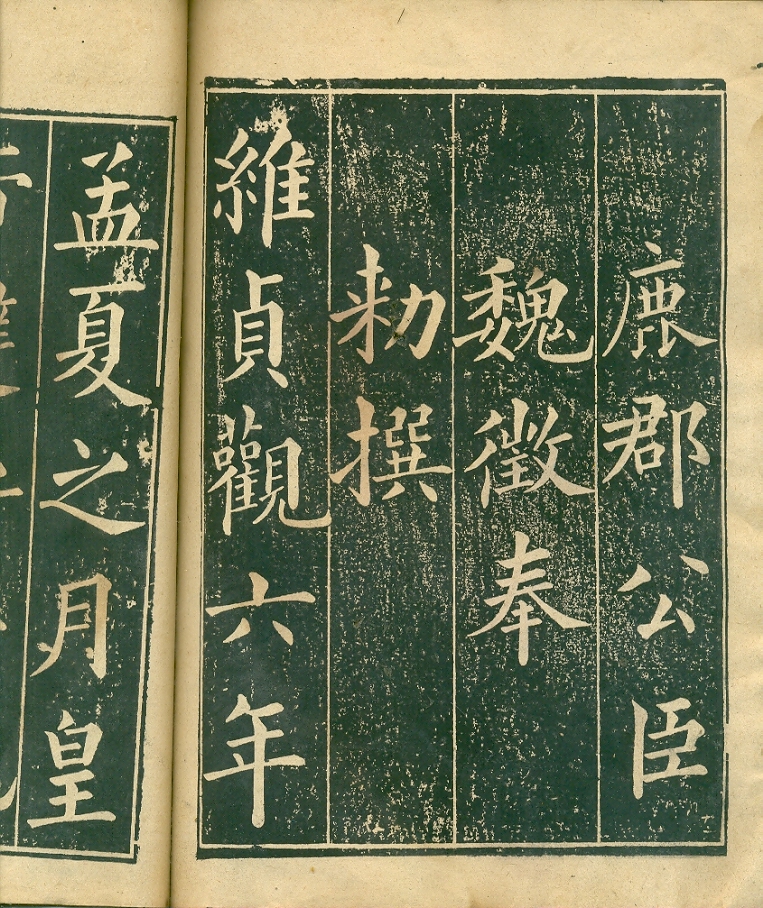 鹿郡公臣
魏徵奉
勑撰
維貞觀六年
孟夏之月皇